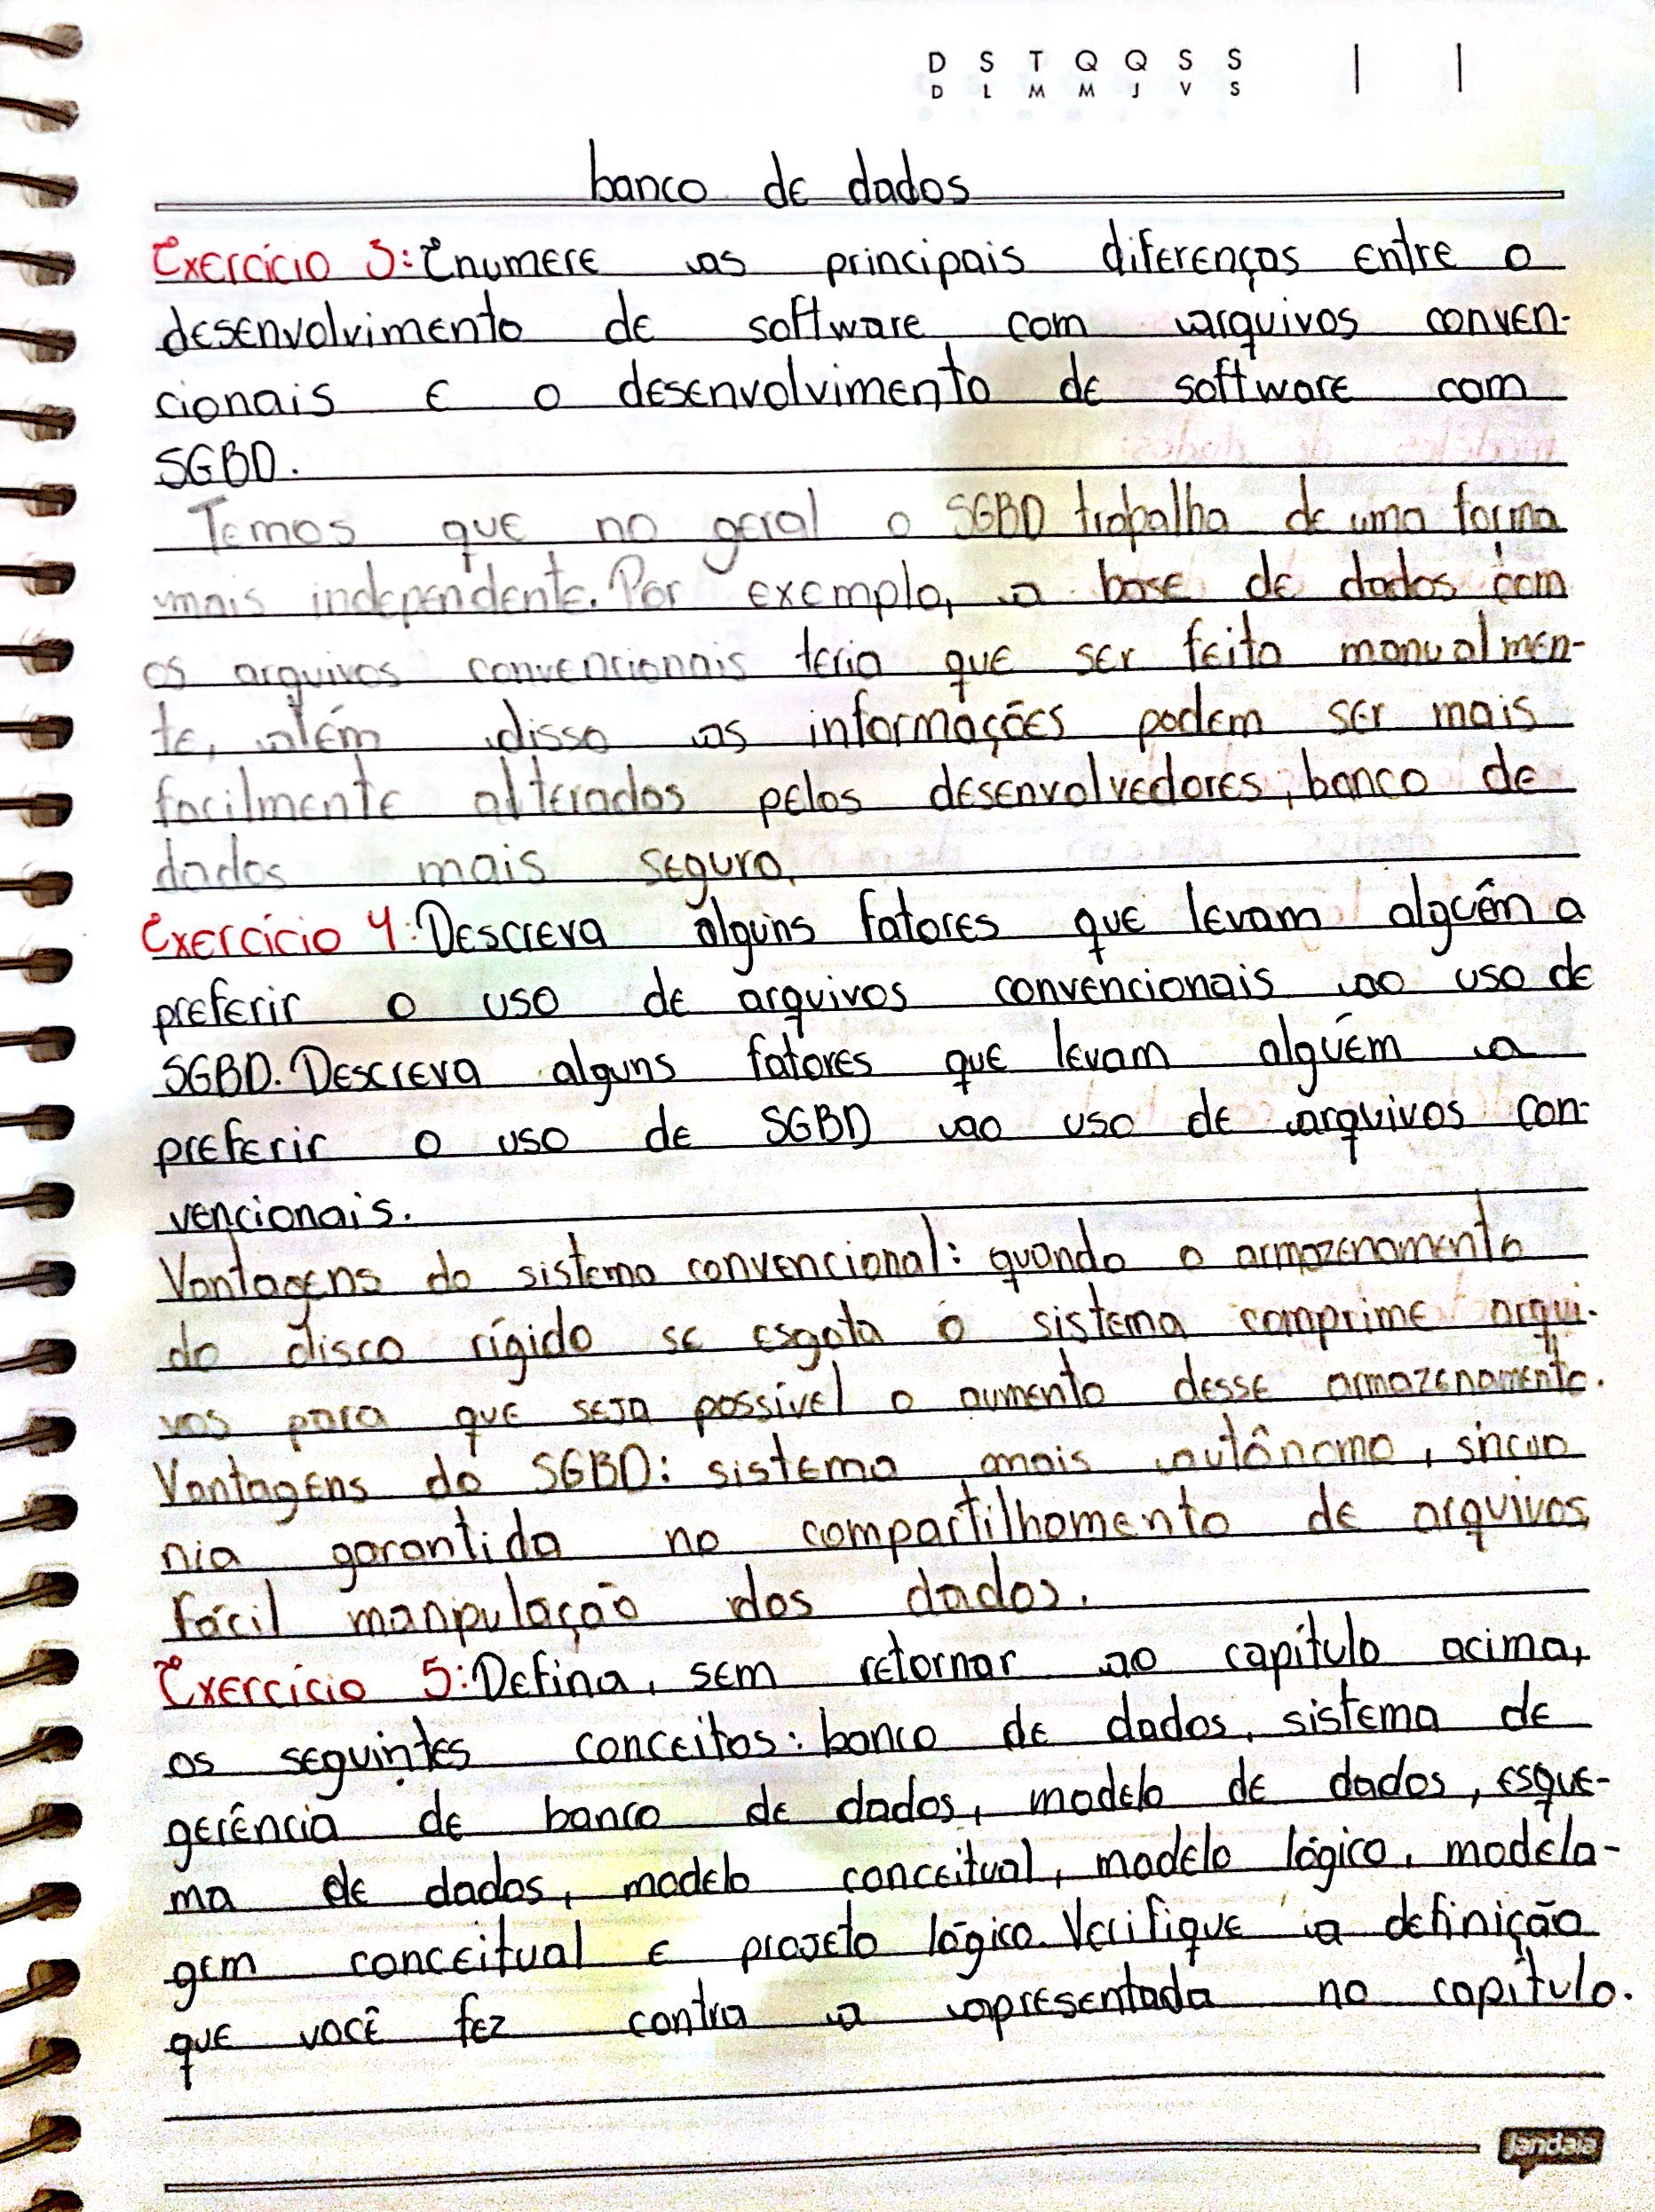 D S T Q Q S S
D L M M J V S
banco de dados
Exercício 3: Enumere as principais diferenças entre o
desenvolvimento de software com arquivos conven-
cionais e o desenvolvimento de software com
SGBD.
Temos que no geral o SGBD trabalha de uma forma
mais independente. Por exemplo, a base de dados com
os arquivos convencionais teria que ser feita manualmen-
te, além disso as informações podem ser mais
facilmente alterados pelos desenvolvedores, banco de
dados mais seguro.
Exercício 4: Descreva alguns fatores que levam alguém a
preferir o uso de arquivos convencionais ao uso de
SGBD. Descreva alguns fatores que levam alguém a
preferir o uso de SGBD ao uso de arquivos con-
vencionais.
Vantagens do sistema convencional: quando o armazenamento
do disco rígido se esgota o sistema comprime arqui-
vos para que seja possível o aumento desse armazenamento.
Vantagens do SGBD: sistema mais autônomo,
nia garantida no compartilhamento de arquivos,
fácil manipulação dos dados.
Exercício 5: Defina, sem retornar ao capítulo acima,
os seguintes conceitos: banco de dados, sistema de
gerência de banco de dados, modelo de dados, esque-
ma de dados, modelo conceitual, modelo lógico, modela-
gem conceitual e projeto lógico. Verifique a definição
que você fez contra a apresentada no capítulo.
jandaia